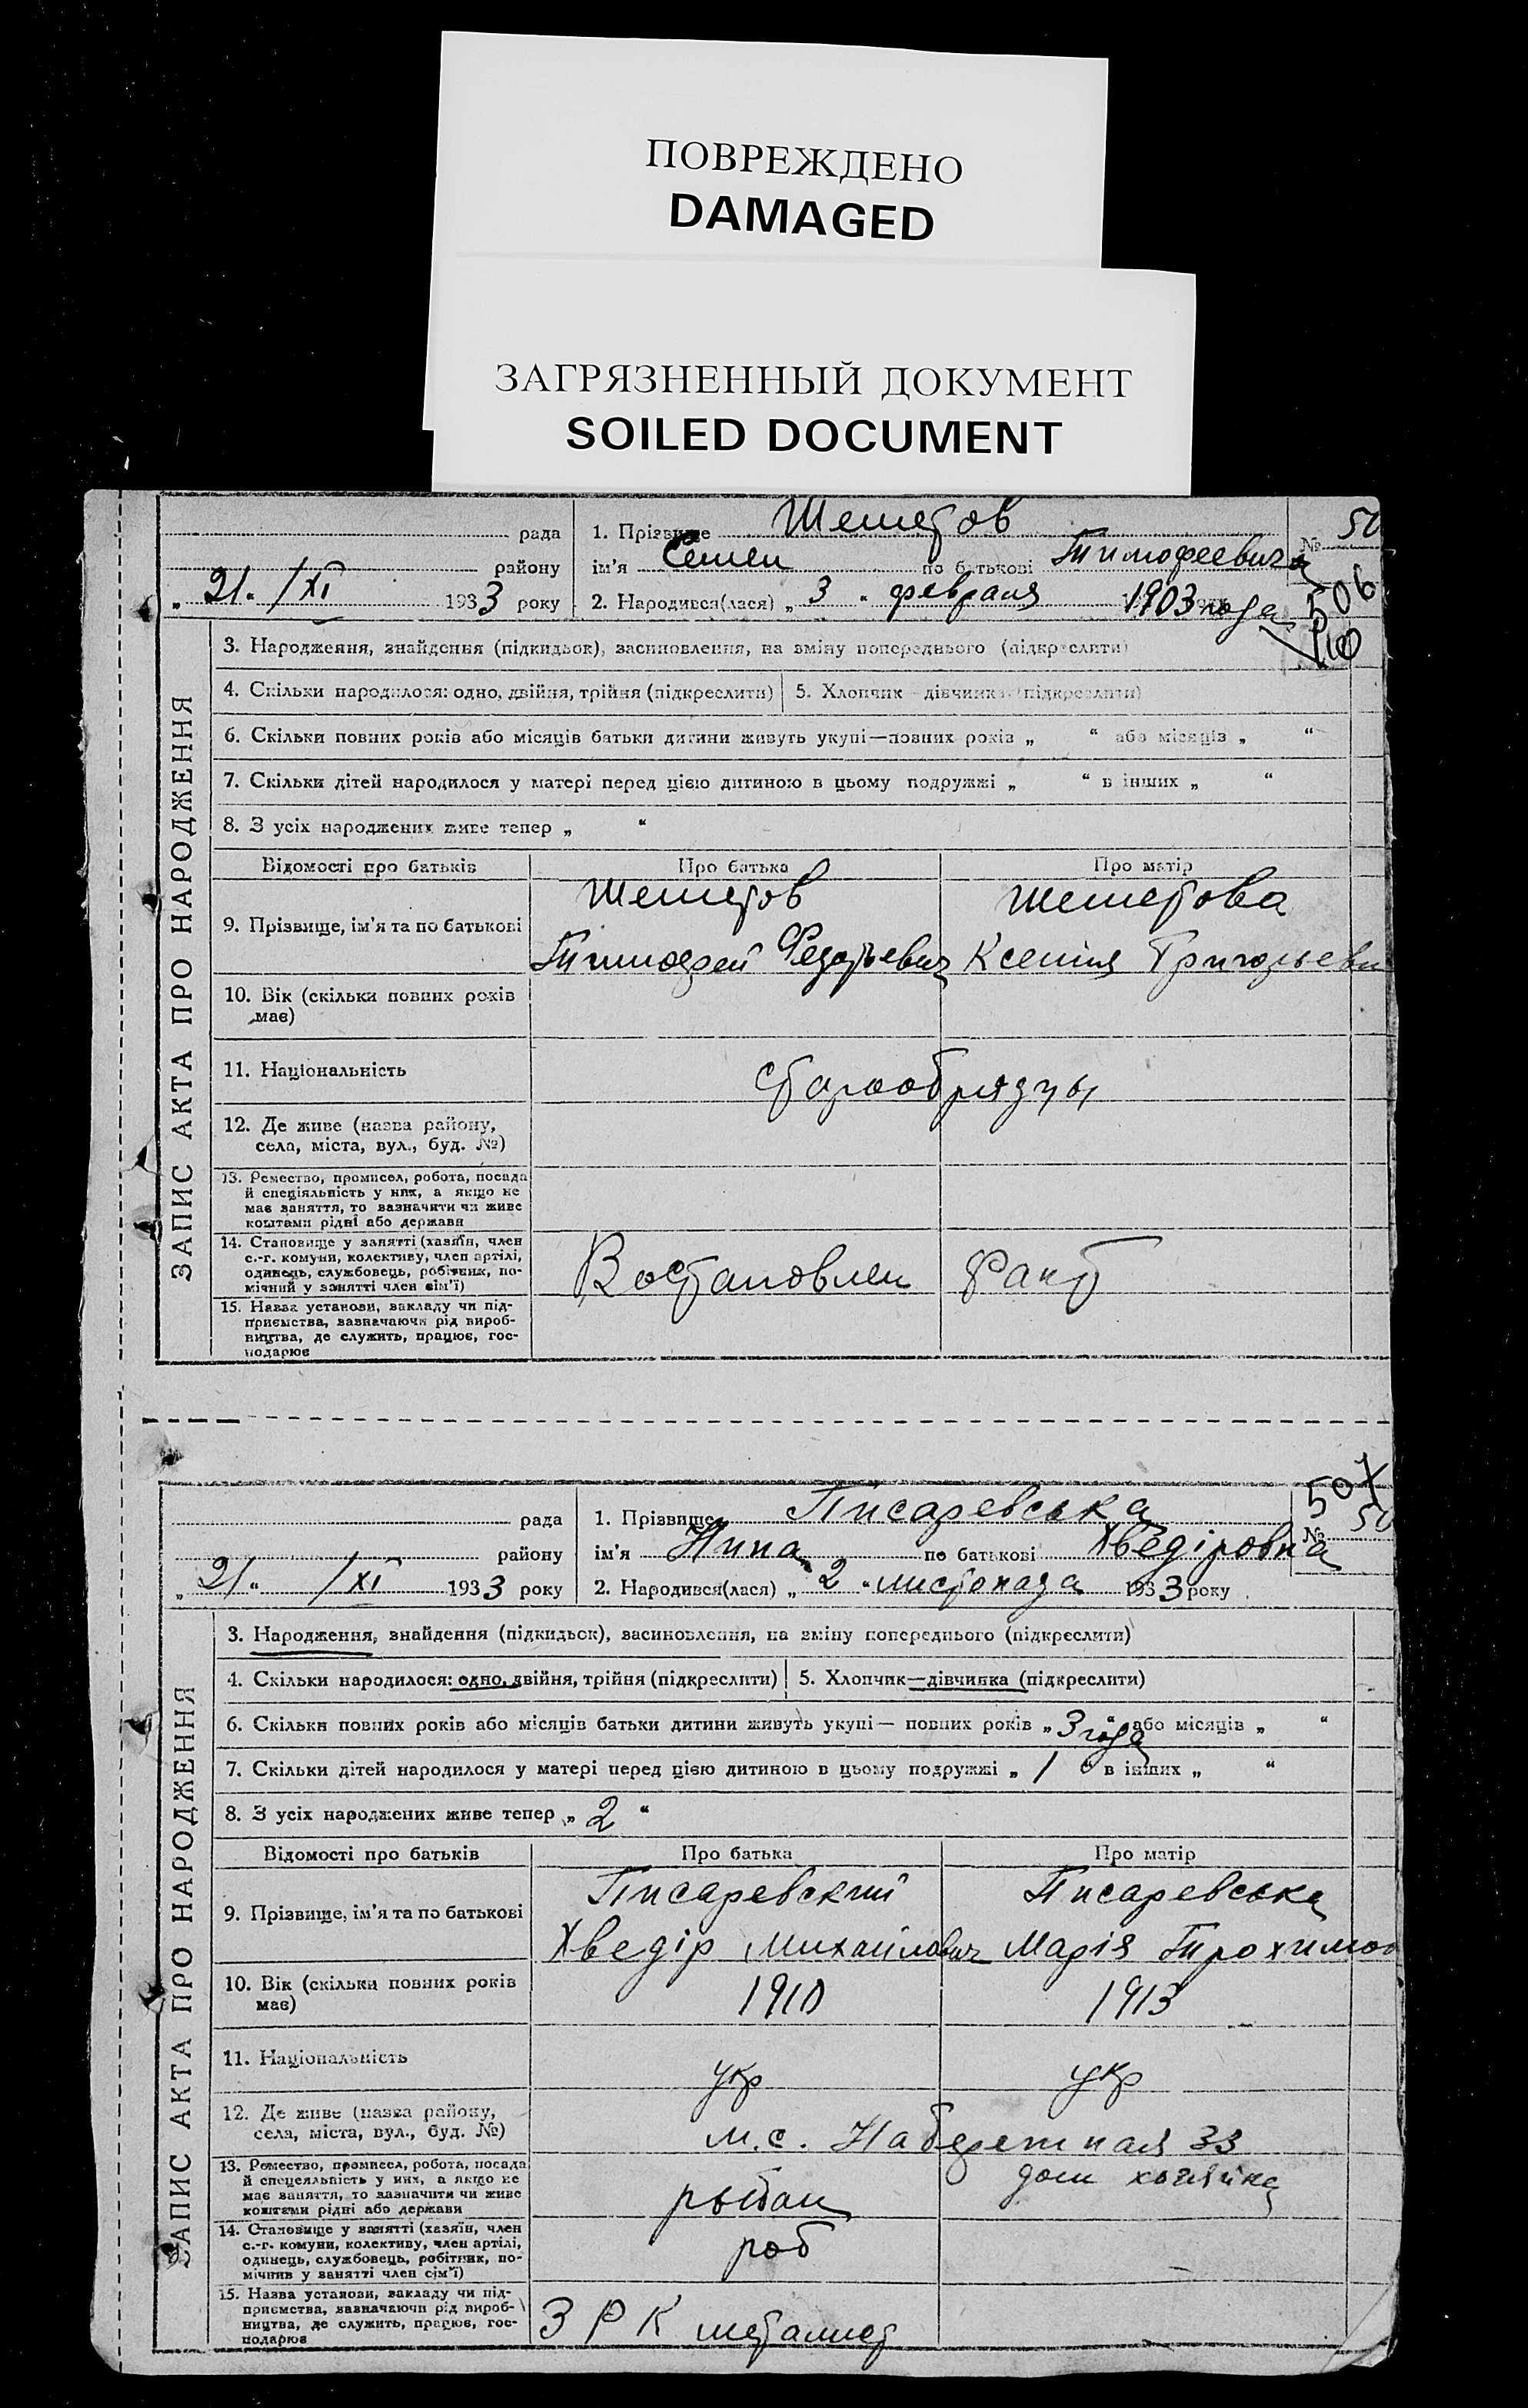 ПОВРЕЖДЕНО
DAMAGED
ЗАГРЯЗНЕННЫЙ ДОКУМЕНТ
SOILED DOCUMENT
рада
району
„ 21 “ /XI 1933 року
1. Прізвище Шеметов
ім'я Семен по батькові Тимофеевич
2. Народився(лася) „ 3 “ февраля 1903 года
№ 50
506
ЗАПИС АКТА ПРО НАРОДЖЕННЯ
3. Народження, знайдення (підкидьок), засиновлення, на зміну попереднього (підкреслити)
4. Скільки народилося: одно, двійня, трійня (підкреслити)
5. Хлопчик—дівчинка (підкреслити)
6. Скільки повних років або місяців батьки дитини живуть укупі—повних років „ “ або місяців „ “
7. Скільки дітей народилося у матері перед цією дитиною в цьому подружжі „ “ в інших „ “
8. З усіх народжених живе тепер „ “
Відомості про батьків Про батька Про матір
9. Прізвище, ім'я та по батькові
Шеметов
Тимофей Федотьевич
Шеметова
Ксения Григорьевн
10. Вік (скільки повних років
має)
11. Національність старообрядцы
12. Де живе (назва району,
села, міста, вул., буд. №)
13. Ремество, промисел, робота, посада
й спеціяльність у них, а якщо не
має заняття, то зазначити чи живе
коштами рідні або держави
14. Становище у занятті (хазяїн, член
с.-г. комуни, колективу, член артілі,
одинець, службовець, робітник, по-
мічний у занятті член сім'ї)
Востановлен факт
15. Назва установи, закладу чи під-
приємства, зазначаючи рід вироб-
ництва, де служить, працює, гос-
подарює
рада
району
„ 21 “ /XI 1933 року
1. Прізвище Писаревська
ім'я Нина по батькові Хведіровна
2. Народився(лася) „ 2 “ листопада 1933 року
507
№ 50
ЗАПИС АКТА ПРО НАРОДЖЕННЯ
3. Народження, знайдення (підкидьок), засиновлення, на зміну попереднього (підкреслити)
4. Скільки народилося: одно, двійня, трійня (підкреслити)
5. Хлопчик—дівчинка (підкреслити)
6. Скільки повних років або місяців батьки дитини живуть укупі— повних років „ 3 года “ або місяців „ “
7. Скільки дітей народилося у матері перед цією дитиною в цьому подружжі „ 1 “ в інших „ “
8. З усіх народжених живе тепер „ 2 “
Відомості про батьків Про батька Про матір
9. Прізвище, ім'я та по батькові
Писаревский
Хведір Михаилович
Писаревська
Марія Трохимов
10. Вік (скільки повних років
має)
1910 1913
11. Національність укр укр
12. Де живе (назва району,
села, міста, вул., буд. №)
м.с. Набережная 33
13. Ремество, промисел, робота, посада
й спецеяльність у них, а якщо не
має заняття, то зазначити чи живе
коштами рідні або держави
рыбак
дом хозяйка
14. Становище у занятті (хазяїн, член
с.-г. комуни, колективу, член артілі,
одинець, службовець, робітник, по-
мічнив у занятті член сім'ї)
роб
15. Назва установи, закладу чи під-
приємства, зазначаючи рід вироб-
ництва, де служить, працює, гос-
подарює
З Р К металист